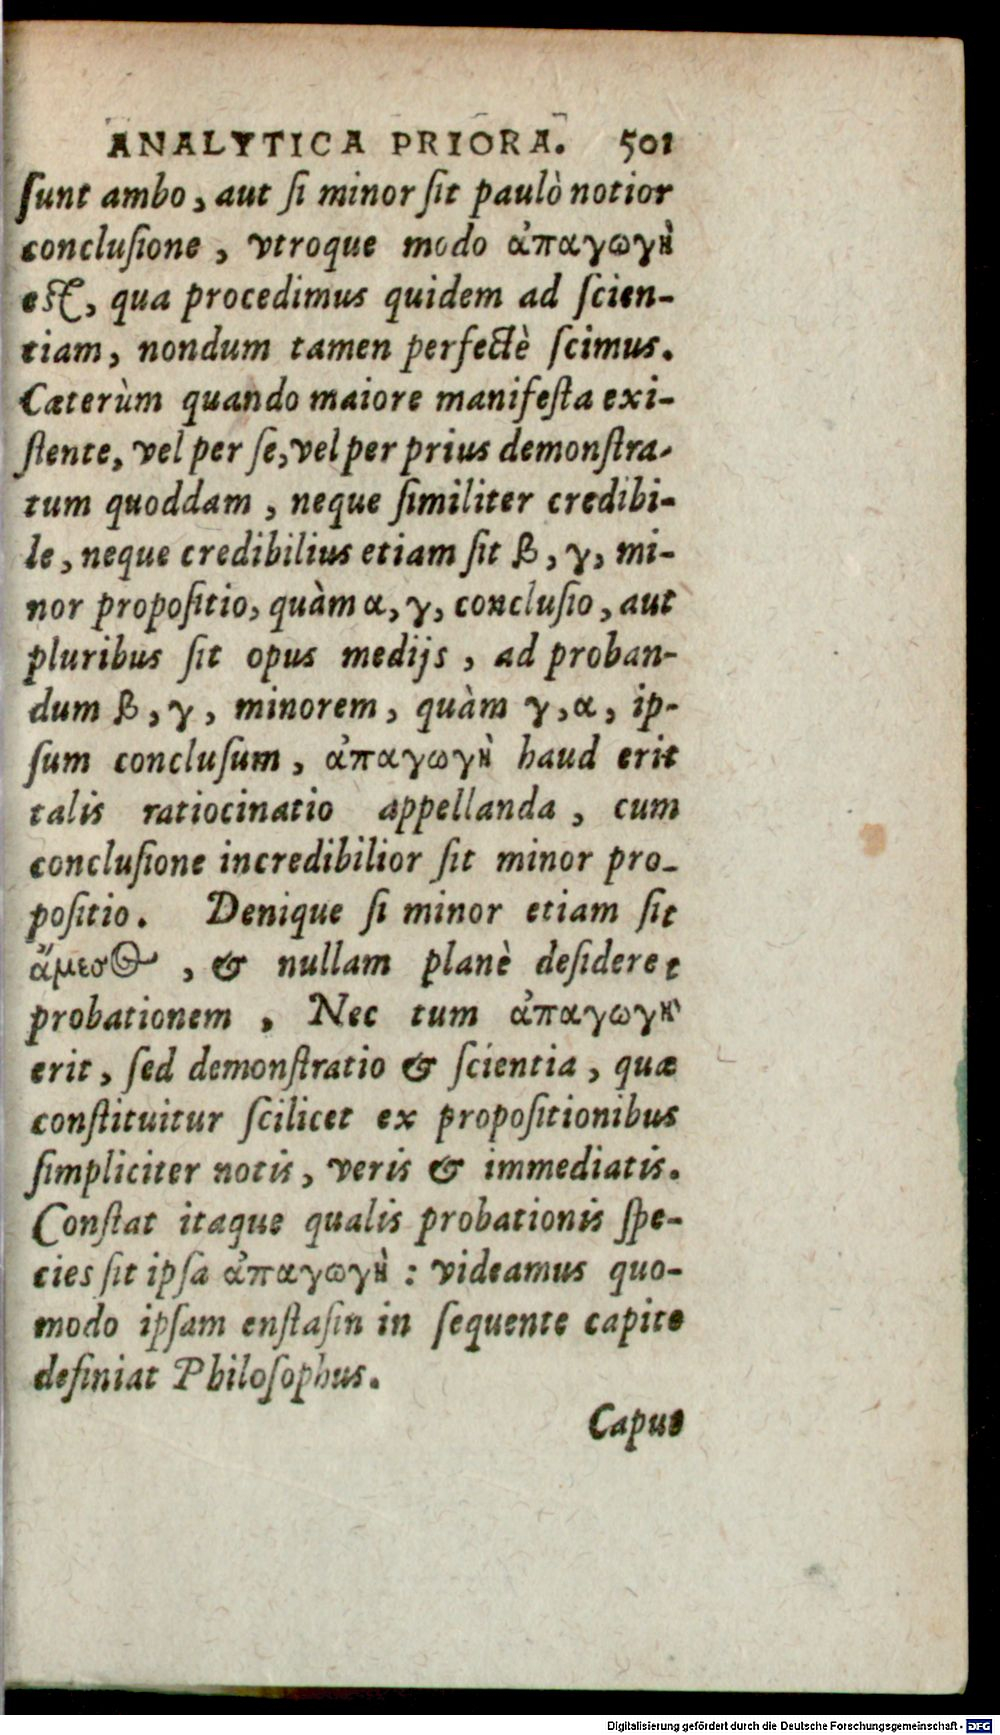 ANALYTICA PRIORA. 501
ſunt ambo, aut ſi minor ſit paulò notior
concluſione, vtroque modo ἀπαγωγὴ
eſt, qua procedimus quidem ad ſcien-
tiam, nondum tamen perfectè ſcimus.
Cæterùm quando maiore manifeſta exi-
ſtente, vel per ſe, vel per prius demonſtra-
tum quoddam, neque ſimiliter credibi-
le, neque credibilius etiam ſit β, γ, mi-
nor propoſitio, quàm α, γ, concluſio, aut
pluribus ſit opus medijs, ad proban-
dum β, γ, minorem, quàm γ, α, ip-
ſum concluſum, ἀπαγωγὴ haud erit
talis ratiocinatio appellanda, cum
concluſione incredibilior ſit minor pro-
poſitio. Denique ſi minor etiam ſit
ἄμεσος, & nullam planè deſideret
probationem, Nec tum ἀπαγωγὴ
erit, ſed demonſtratio & ſcientia, quæ
conſtituitur ſcilicet ex propoſitionibus
ſimpliciter notis, veris & immediatis.
Conſtat itaque qualis probationis ſpe-
cies ſit ipſa ἀπαγωγὴ: videamus quo-
modo ipſam enſtaſin in ſequente capite
definiat Philoſophus.
Caput
Digitalisierung gefördert durch die Deutsche Forschungsgemeinschaft - DFG